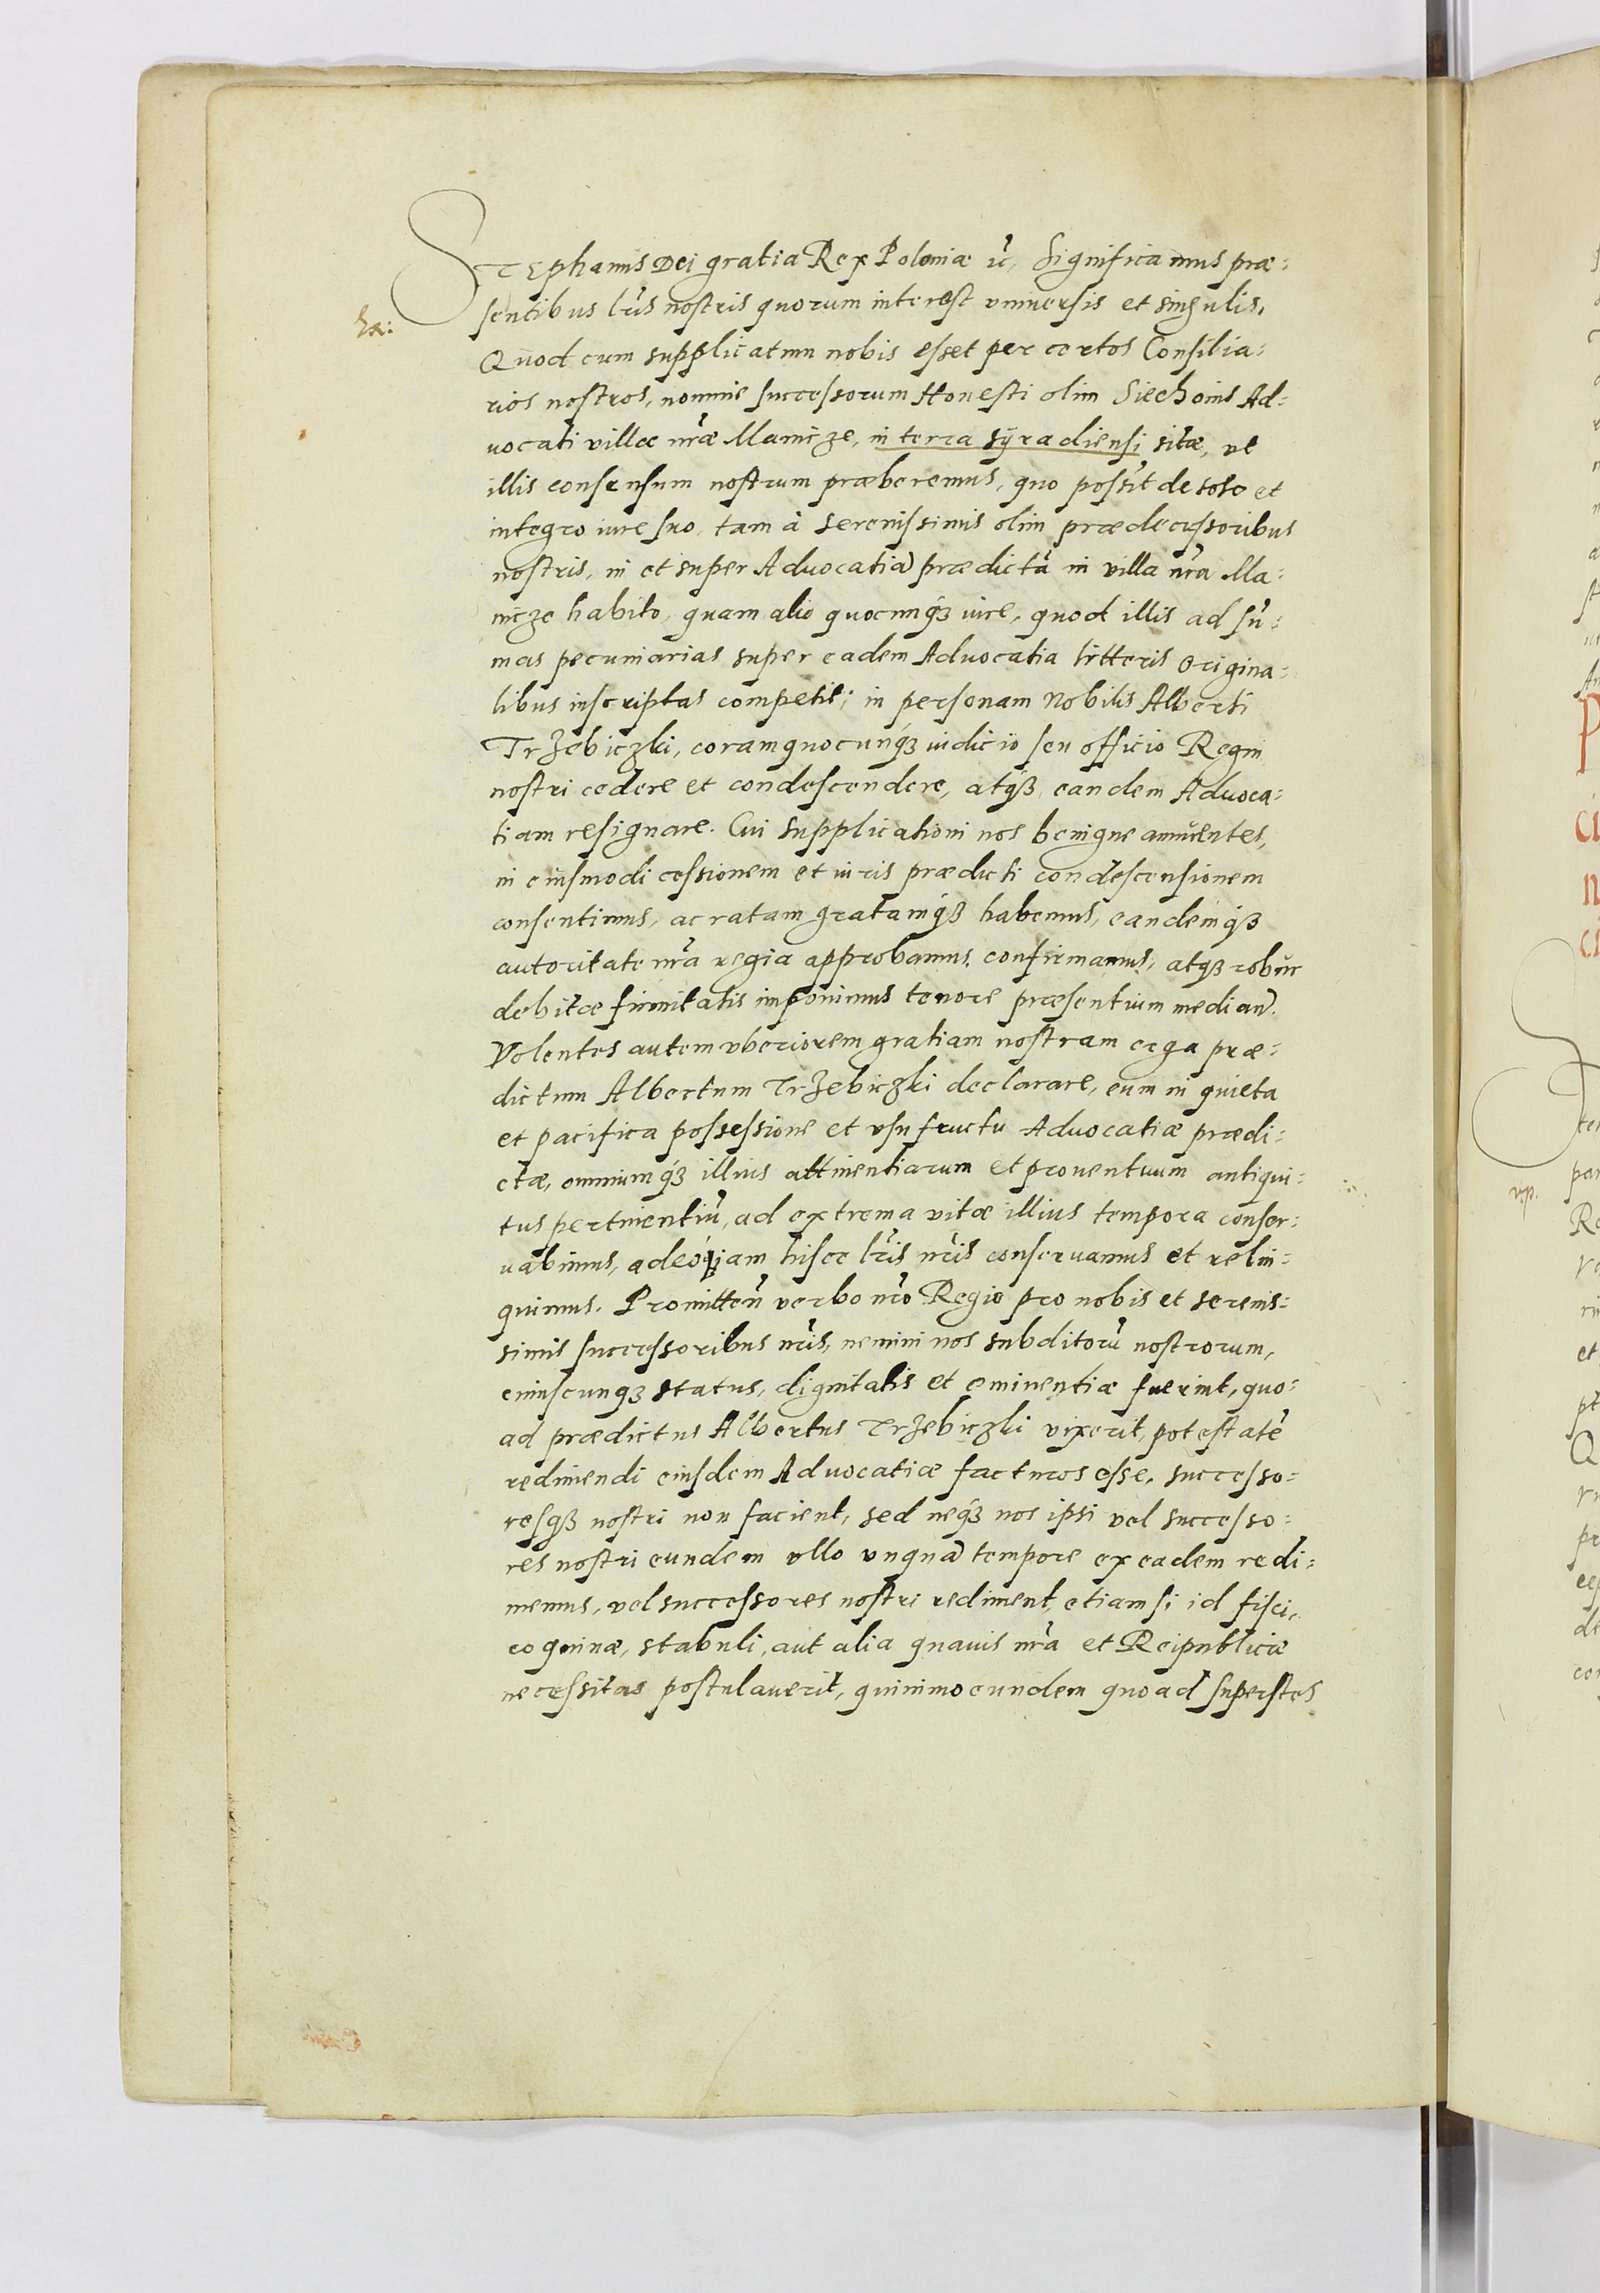 STEphanus Dei gratia Rex Poloniæ &c̃, Significamus præ=
sentibus lr̃is nostris quorum interest vniuersis et singulis,
Quod cum supplicatum nobis esset per certos Consilia=
rios nostros, nomine successorum Honesti olim Siechonis Ad=
uocati villæ nr̃æ Manicze, in terra syradiensi sitæ, vt
illis consensum nostrum præberemus, quo possit de toto et
integro iure suo, tam à serenissimis olim prædecessoribus
nostris, in et super Aduocatiã prædictã in villa nr̃a Ma=
nicze habito, quam alio quocunq́ꝫ iure, quod illis ad sũ=
mas pecuniarias super eadem Aduocatia litteris origina=
libus inscriptas competit; in personam Nobilis Alberti
Trzebiczki, coram quocunq́ꝫ iudicio seu officio Regni
nostri cedere et condescendere, atq́ꝫ eandem Aduoca=
tiam resignare. Cui supplicationi nos benigne annuentes,
in eiusmodi cessionem et iuris prædicti condescensionem
consentimus, ac ratam gratamq́ꝫ habemus, eandemq́ꝫ
autoritate nr̃a regia approbamus, confirmamus, atqꝫ robur
debitæ firmitatis imponimus tenore præsentium median̄.
Volentes autem vberiorem gratiam nostram erga præ=
dictum Albertum Trzebiczki declarare, eum in quieta
et pacifica possessione et vsufructu Aduocatiæ prædi=
ctæ, omniumq́ꝫ illius attinentiarum et prouentuum antiqui=
tus pertinentiũ, ad extrema vitæ illius tempora conser=
uabimus, adeoq́ꝫ iam hisce lr̃is nr̃is conseruamus et relin=
quimus. Promitten̄ verbo nr̃o Regio pro nobis et serenis=
simis successoribus nr̃is, nemini nos subditorũ nostrorum,
cuiuscunqꝫ status, dignitatis et eminentiæ fuerint, quo=
ad prædictus Albertus Trzebiczki vixerit, potestatẽ
redimendi eiusdem Aduocatiæ facturos esse, successo=
resq́ꝫ nostri non facient, sed neq́ꝫ nos ipsi vel successo=
res nostri eundem vllo vnquã tempore ex eadem redi=
memus, vel successores nostri rediment, etiam si id fisci,
coquinæ, stabuli, aut alia quauis nr̃a et Reipublicæ
necessitas postulauerit, quinimo eundem quoad superstes